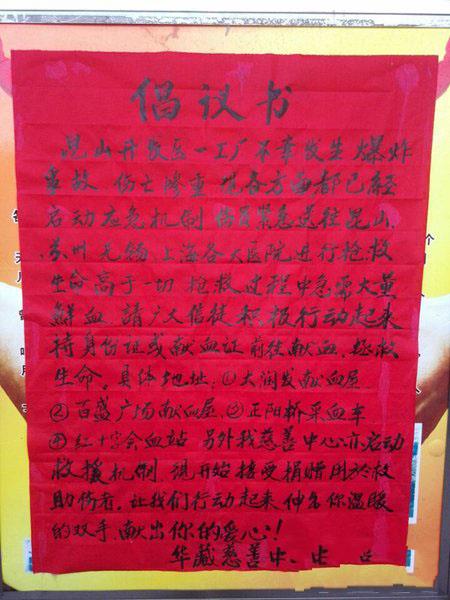 倡议书
昆山开发区一工厂不幸发生爆炸
事故 伤亡隆重 现各方面都已经
启动应急机制 伤员紧急送往昆山、
苏州 无锡 上海各大医院进行抢救
生命高于一切 抢救过程中急需大量
鲜血 請广大信徒积极行动起来
持身份证或献血证 前往献血，拯救
生命。具体地址：①大润发献血屋
②百盛广场献血屋 ③正阳桥采血车
④红十字会血站 另外我慈善中心亦启动
救援机制 现开始接受捐赠用於救
助伤者。让我们行动起来 伸名你温暖
的双手，献出你的爱心！
华藏慈善中